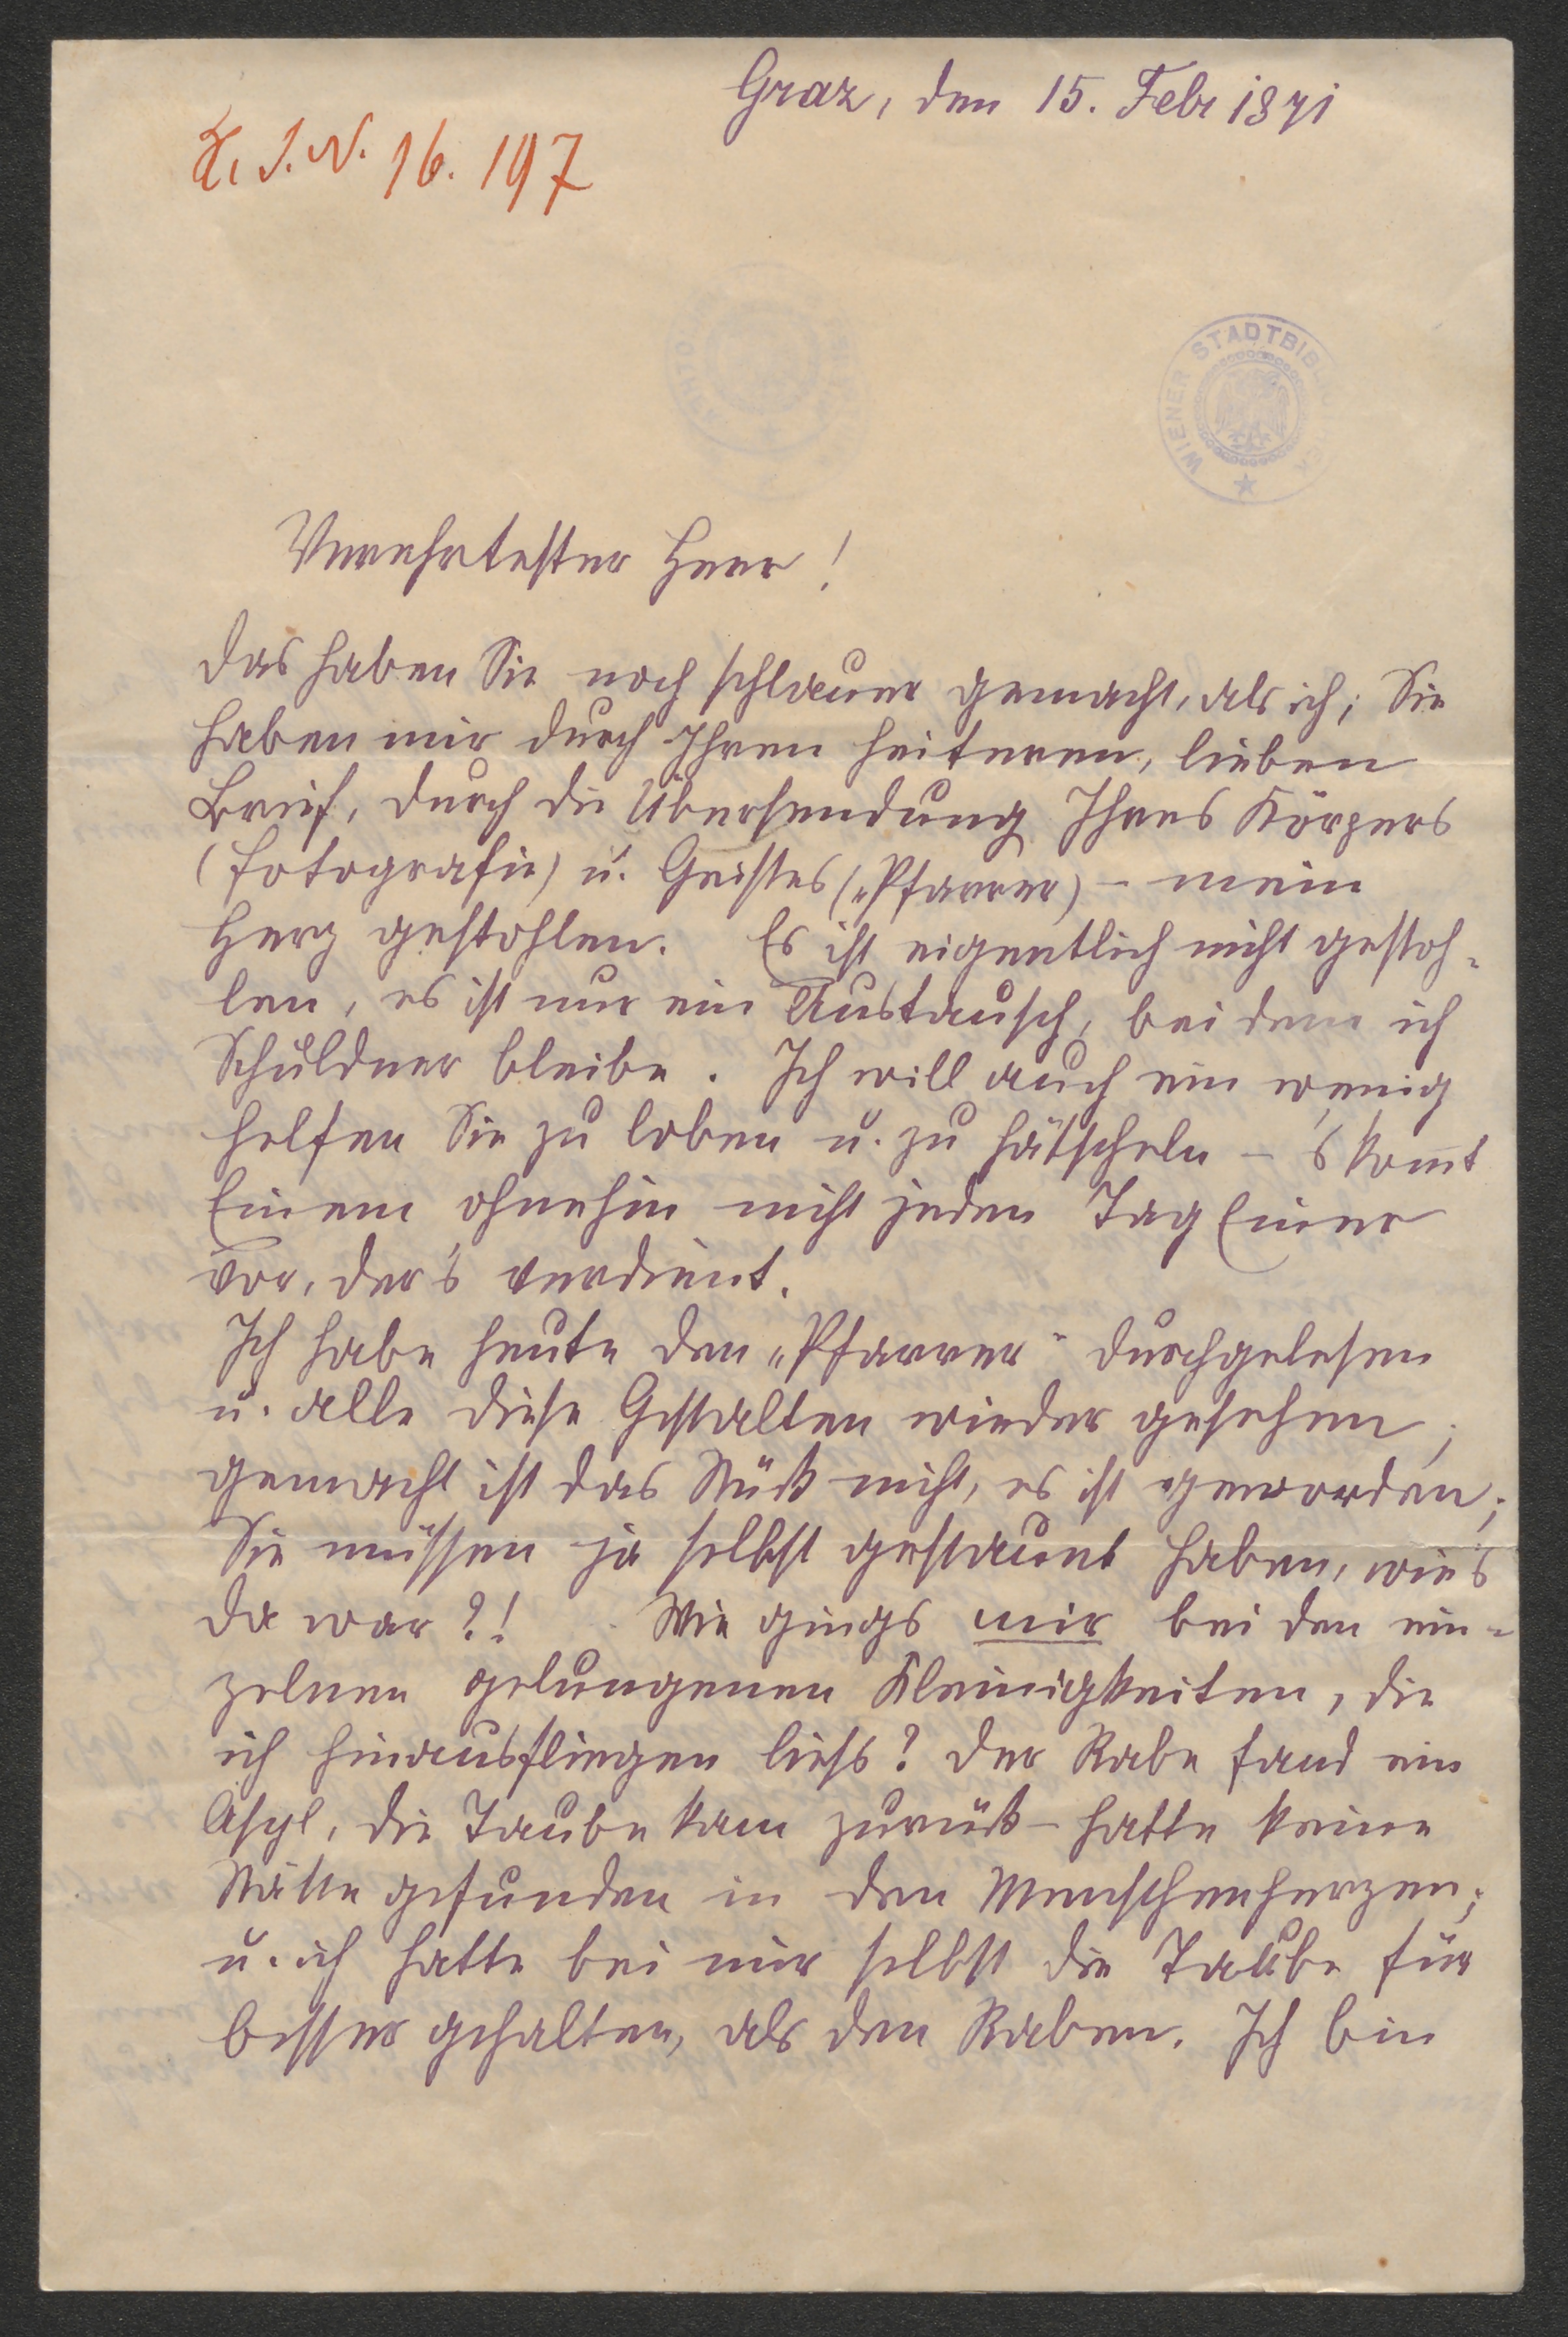 Graz, den 15. Febr 1871
H. I. N. 16.197
WIENER STADTBIBLIOTHEK
Verehrtester Herr!
Das haben Sie noch schlauer gemacht, als ich; Sie
haben mir durch Ihren heiteren, lieben
Brief, durch die Übersendung Ihres Körpers
(Fotografie) u. Geistes („Pfarrer) – mein
Herz gestohlen. Es ist eigentlich nicht gestoh-
len, es ist nur ein Austausch, bei dem ich
Schuldner bleibe. Ich will auch ein wenig
helfen Sie zu loben u. zu hätscheln – 's kom̅t
Einem ohnehin nicht jeden Tag Einer
vor, der's verdient.
Ich habe heute den „Pfarrer“ durchgelesen
u. alle diese Gestalten wieder gesehen;
gemacht ist das Stück nicht, es ist geworden;
Sie müssen ja selbst gestaunt haben, wie's
da war?! Wie gings mir bei den ein-
zelnen gelungenen Kleinigkeiten, die
ich hinausfliegen liess? Der Rabe fand ein
Asyl, die Taube kam zurück – hatte keine
Stätte gefunden in den Menschenherzen;
u. ich hatte bei mir selbst die Taube für
besser gehalten, als den Raben. Ich bin